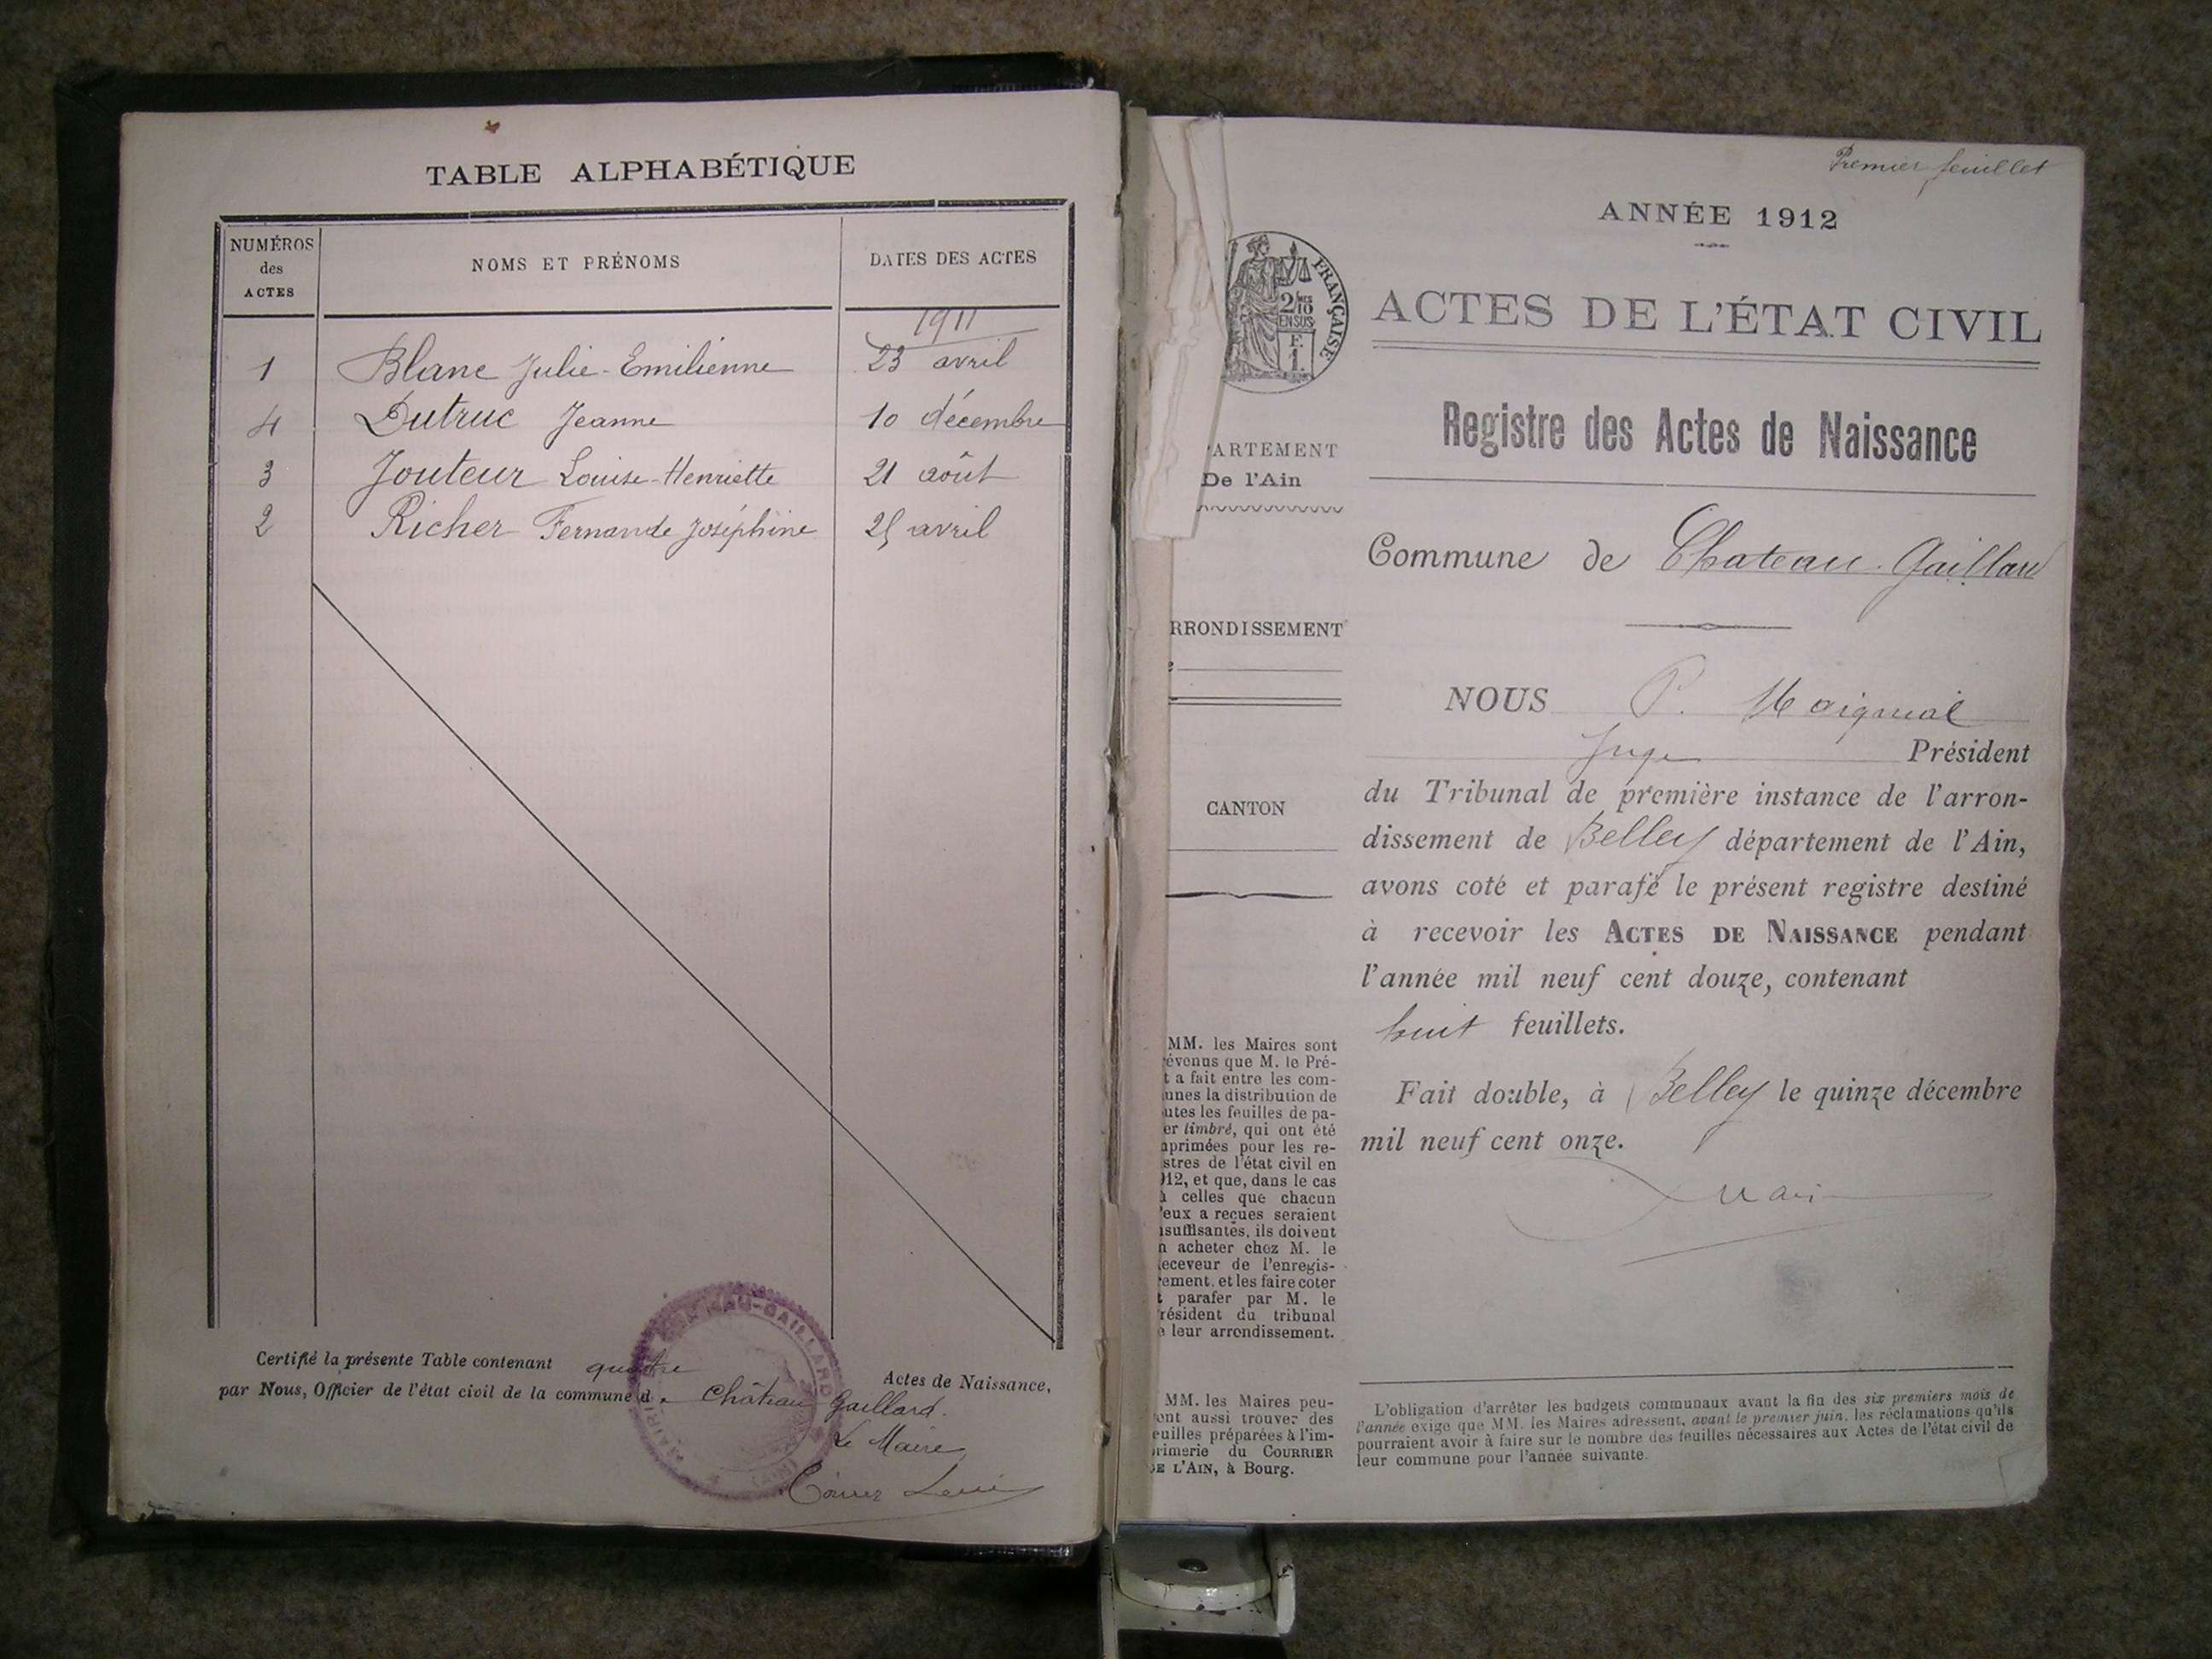 TABLE ALPHABÉTIQUE
NUMÉROS des ACTES
NOMS ET PRÉNOMS
DATES DES ACTES
1911
1 Blanc Julie-Emilienne 23 avril
4 Dutruc Jeanne 10 décembre
3 Jouteur Louise-Henriette 21 août
2 Richer Fernande Joséphine 25 avril
Certifié la présente Table contenant quatre Actes de Naissance,
par Nous, Officier de l'état civil de la commune d Château Gaillard.
Le Maire
Premier feuillet
ANNÉE 1912
FRANÇAISE
2/10
EN SUS
F.
1.
ACTES DE L'ÉTAT CIVIL
Registre des Actes de Naissance
ARTEMENT
De l'Ain
Commune de Chateau-Gaillard
RRONDISSEMENT
CANTON
NOUS P.
Juge Président
du Tribunal de première instance de l'arron-
dissement de Belley département de l'Ain,
avons coté et parafé le présent registre destiné
à recevoir les ACTES DE NAISSANCE pendant
l'année mil neuf cent douze, contenant
huit feuillets.
Fait double, à Belley le quinze décembre
mil neuf cent onze.
MM. les Maires sont
évenus que M. le Pré-
t a fait entre les com-
unes la distribution de
utes les feuilles de pa-
er timbré, qui ont été
primées pour les re-
stres de l'état civil en
12, et que, dans le cas
celles que chacun
'eux a reçues seraient
suffisantes, ils doivent
n acheter chez M. le
eceveur de l'enregis-
ement, et les faire coter
t parafer par M. le
résident du tribunal
e leur arrondissement.
MM. les Maires peu-
ent aussi trouver des
euilles préparées à l'im-
rimerie du COURRIER
DE L'AIN, à Bourg.
L'obligation d'arrêter les budgets communaux avant la fin des six premiers mois de
l'année exige que MM. les Maires adressent, avant le premier juin, les réclamations qu'ils
pourraient avoir à faire sur le nombre des feuilles nécessaires aux Actes de l'état civil de
leur commune pour l'année suivante.